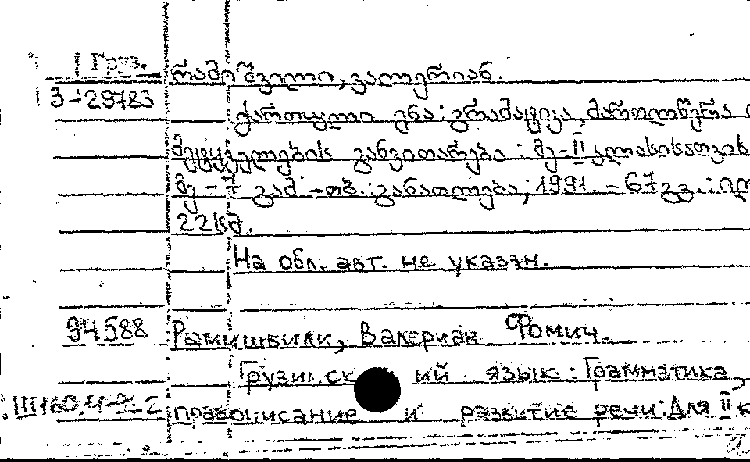 Груз.
რამიშვილი, ვალერიან.
3-29783
ქართული ენა: გრამატიკა, მართლწერა
მეტყველების განვითარება: მე-II კლასისათვის
მე-7 გამ. -თბ.: განათლება, 1991. - 67 გვ.: ილ
22 სმ.
На обл. авт. не указан.
94588 Рамишвили, Валериан Фомич.
Грузинский язык: Грамматика,
правописание и развитие речи: Для II к